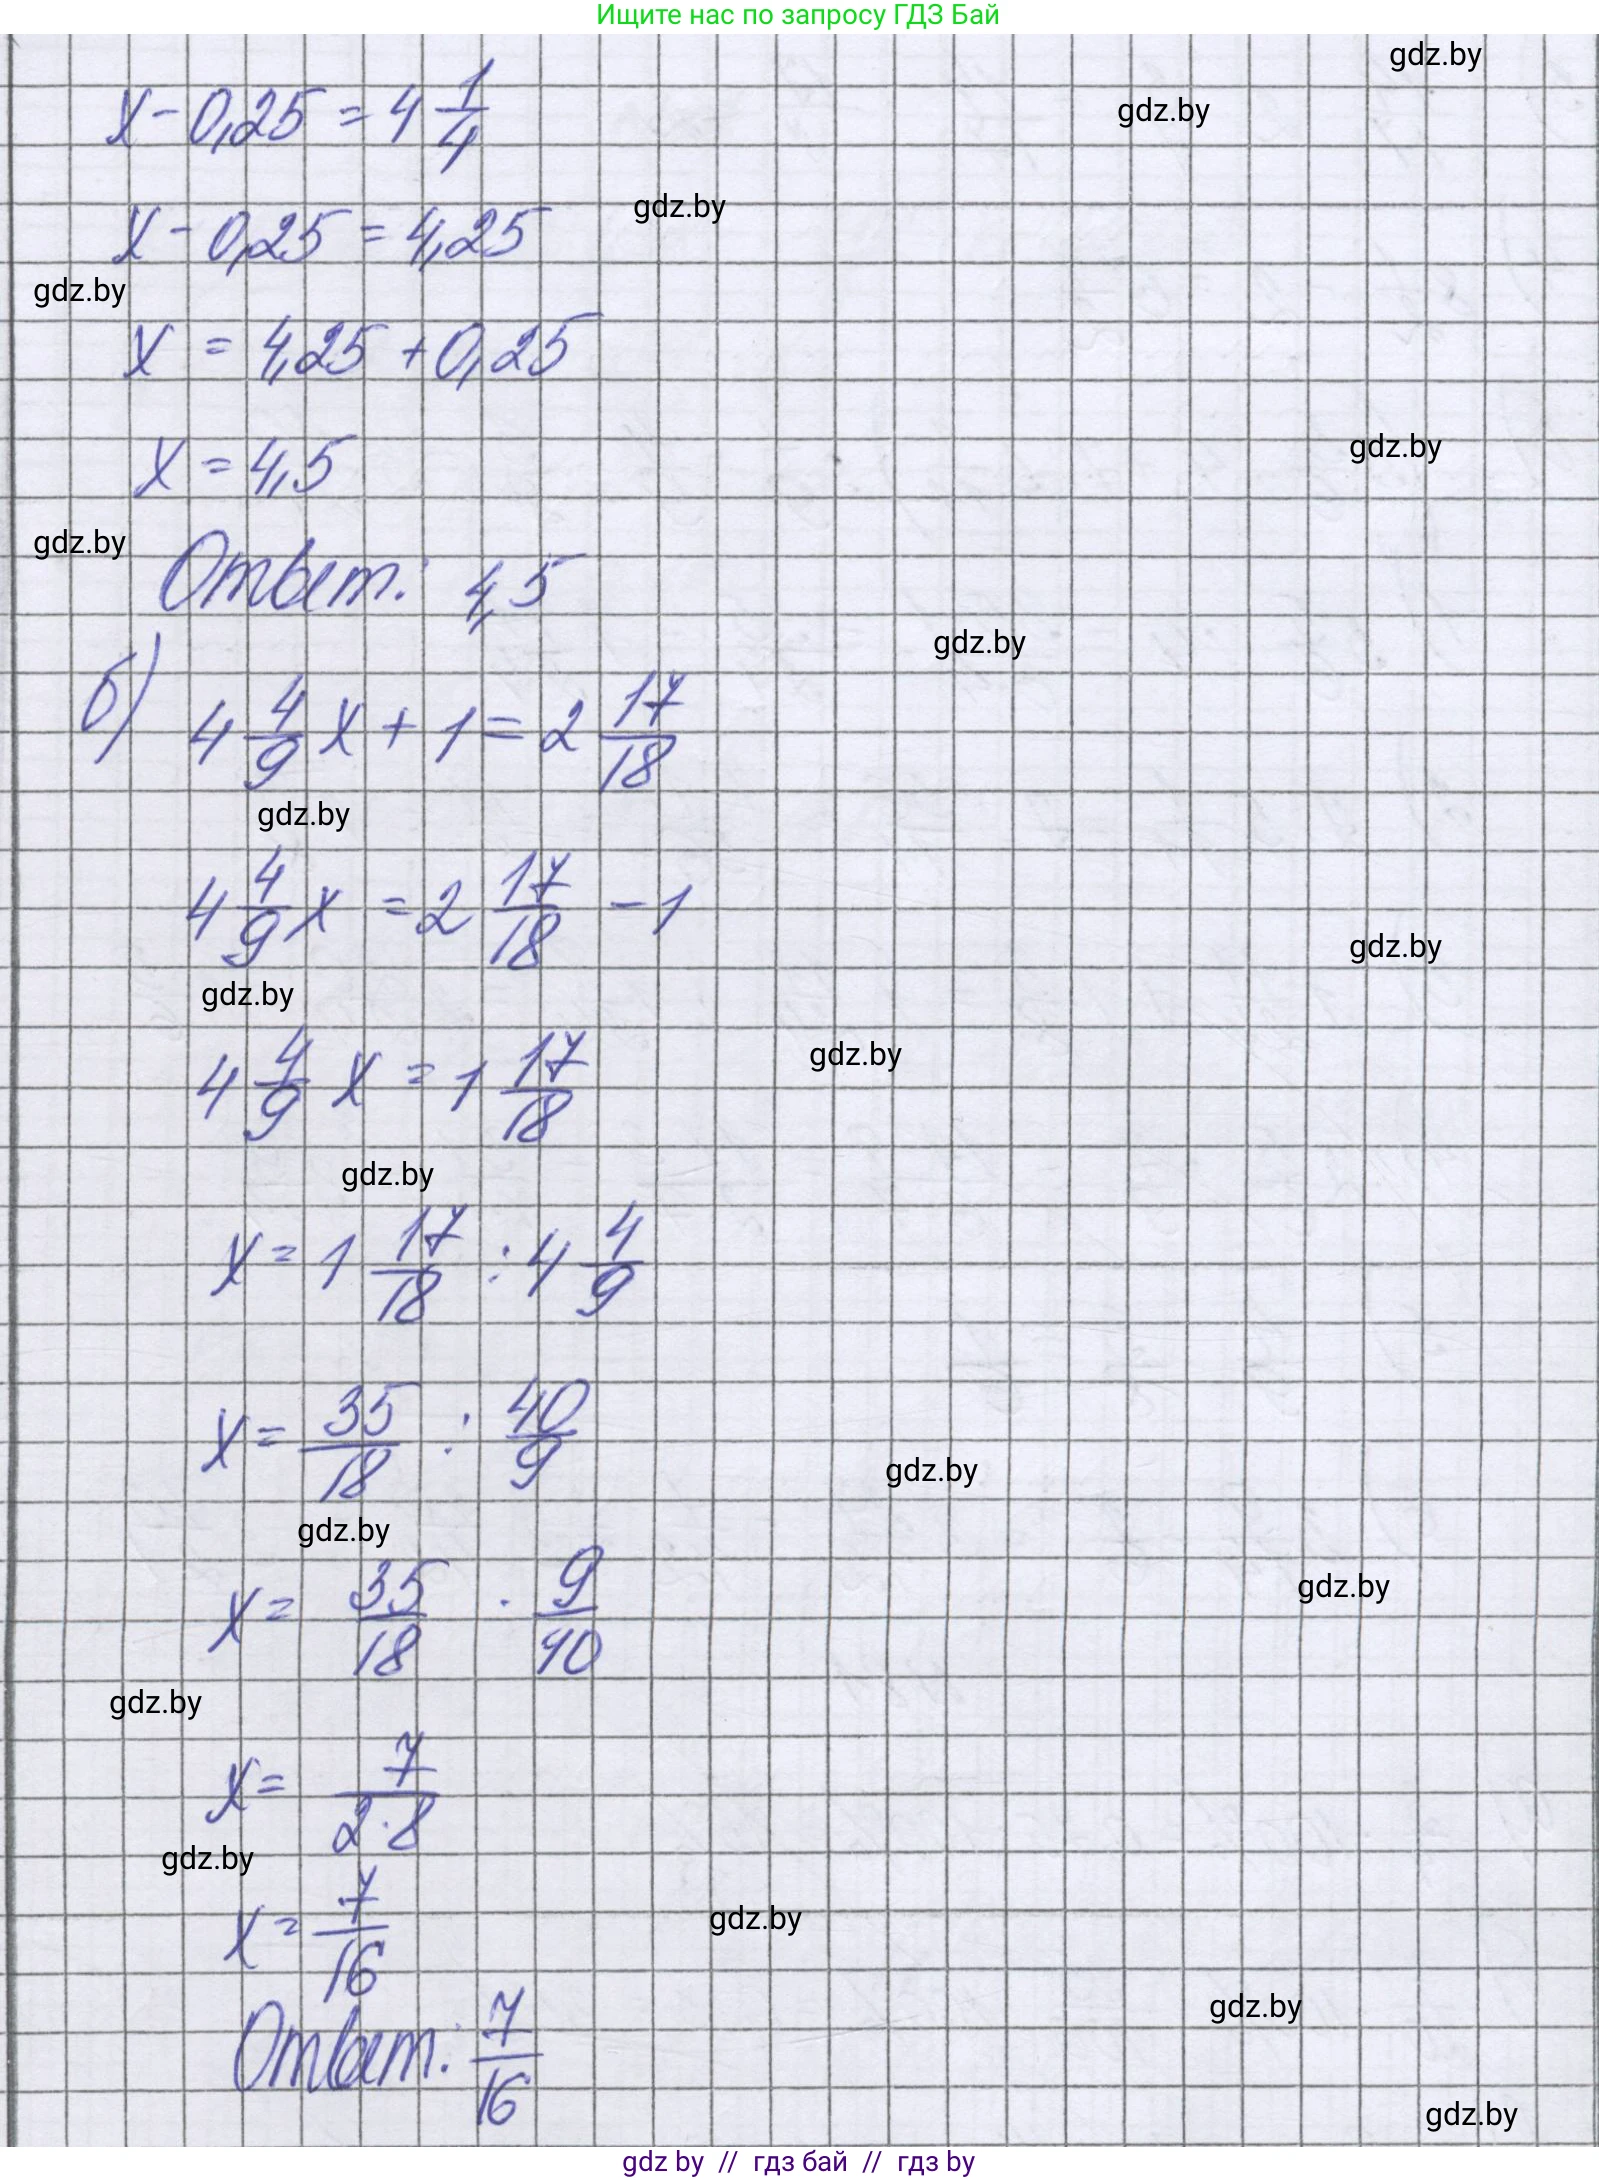 Ищите нас по запросу ГДЗ Бай
gdz.by
x - 0,25 = 4 1/4
gdz.by
x - 0,25 = 4,25
gdz.by
gdz.by
x = 4,25 + 0,25
x = 4,5
gdz.by
gdz.by
Ответ: 4,5
gdz.by
б) 4 4/9 x + 1 = 2 17/18
gdz.by
4 4/9 x = 2 17/18 - 1
gdz.by
gdz.by
4 4/9 x = 1 17/18
gdz.by
gdz.by
x = 1 17/18 : 4 4/9
x = 35/18 : 40/9
gdz.by
gdz.by
x = 35/18 · 9/40
gdz.by
gdz.by
x = 7/2·8
gdz.by
x = 7/16
gdz.by
gdz.by
Ответ: 7/16
gdz.by
gdz by // гдз бай // гдз by